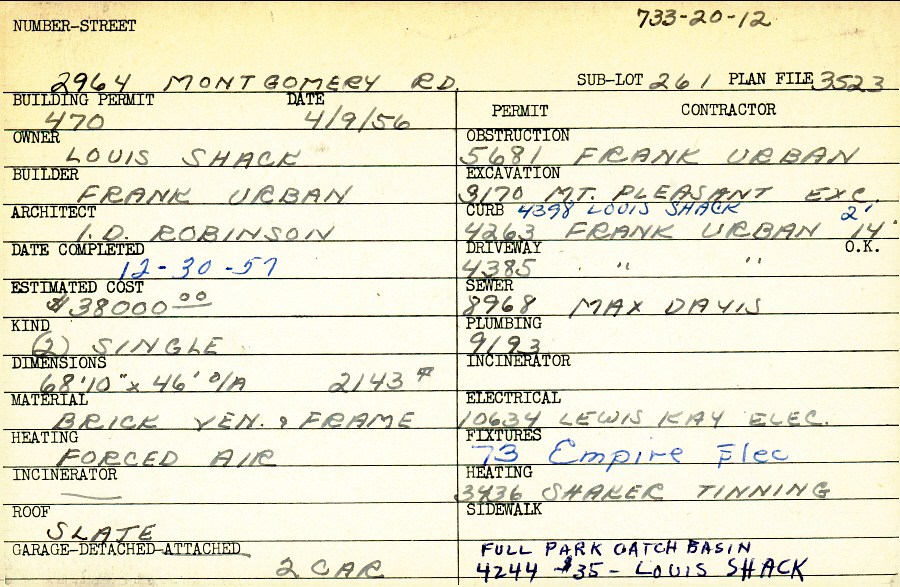 733-20-12
NUMBER-STREET
2964 MONTGOMERY RD. SUB-LOT 261 PLAN FILE 3523
BUILDING PERMIT DATE
470 4/9/56
OWNER
LOUIS SHACK
BUILDER
FRANK URBAN
ARCHITECT
I.D. ROBINSON
DATE COMPLETED
12-30-57
ESTIMATED COST
$38000 00
KIND
(2) SINGLE
DIMENSIONS
68'10" x 46' O/A 2143
MATERIAL
BRICK VEN. & FRAME
HEATING
FORCED AIR
INCINERATOR
—
ROOF
SLATE
GARAGE-DETACHED-ATTACHED
2 CAR
PERMIT CONTRACTOR
OBSTRUCTION
5681 FRANK URBAN
EXCAVATION
3170 MT. PLEASANT EXC.
CURB 4398 LOUIS SHACK 2'
4263 FRANK URBAN 14'
DRIVEWAY O.K.
4385 " "
SEWER
8968 MAX DAVIS
PLUMBING
9193
INCINERATOR
ELECTRICAL
10634 LEWIS KAY ELEC.
FIXTURES
73 Empire Elec
HEATING
3436 SHAKER TINNING
SIDEWALK
FULL PARK CATCH BASIN
4244 - $35 - LOUIS SHACK